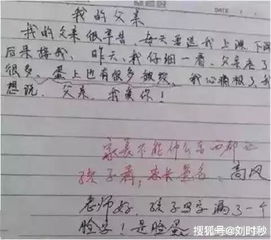 我的父亲
我的父亲很辛苦，每天要送我上课，下课
后来接我，昨天，我仔细一看，父亲老了
很多，蛋上也有很多皱纹，我心痛极了，我
想说，父亲，我爱你！
家长不能什么都
孩子希，家长签名：高风
老师好，孩子写字漏了一个
脸字！是脸蛋
搜狐号@刘时秒